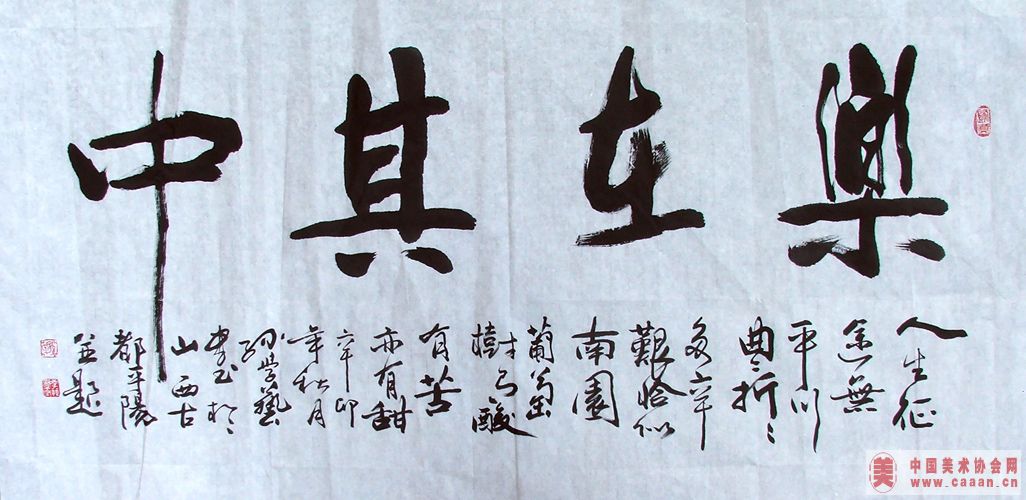 樂在其中
人生征
途無
平川
曲々折々
多辛
艱恰似
南園
葡萄
樹有酸
有苦
亦有甜
辛卯
年秋月
藝
書於
山西古
都平陽
並題
中国美术协会网
www.caaan.cn